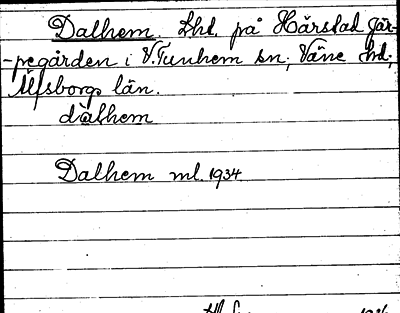 Dalhem. Lht. på Hårstad Jär-
-pegården i V. Tunhem sn, Väne hd,
Älfsborgs län.
dalhem
Dalhem ml. 1934